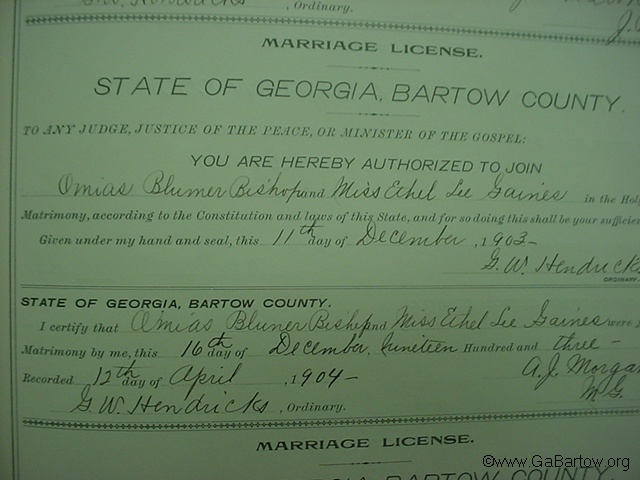 Hendricks, Ordinary.
J.
MARRIAGE LICENSE.
STATE OF GEORGIA, BARTOW COUNTY.
TO ANY JUDGE, JUSTICE OF THE PEACE, OR MINISTER OF THE GOSPEL:
YOU ARE HEREBY AUTHORIZED TO JOIN
Omias Blumer Bishop and Miss Ethel Lee Gaines in the Hol
Matrimony, according to the Constitution and laws of this State, and for so doing this shall be your sufficie
Given under my hand and seal, this 11th day of December, 1903-
G. W. Hendricks
ORDINARY.
STATE OF GEORGIA, BARTOW COUNTY.
I certify that Omias Blumer Bishop and Miss Ethel Lee Gaines were
Matrimony by me, this 16th day of December, Nineteen Hundred and three-
A. J. Morgan
Recorded 12th day of April, 1904-
M G.
G. W. Hendricks, Ordinary.
MARRIAGE LICENSE.
GEORGIA, BARTOW COUNTY.
©www.GaBartow.org